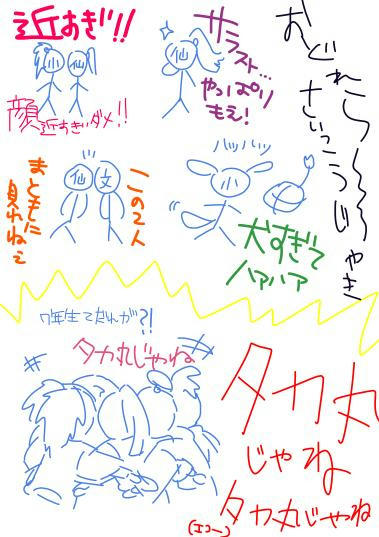 近すぎ!!
小
仙
顔近すぎダメ!!
サラスト…
やっぱり
もえ!
仙
おどれら〜〜
さいっこうじ
ゃき
まともに
見れねぇ
仙
文
この2人
ハッハッ
小
犬すぎて
ハアハア
7年生てだれが?!
タカ丸じゃね
タカ丸
じゃね
タカ丸じゃね
(エコー)